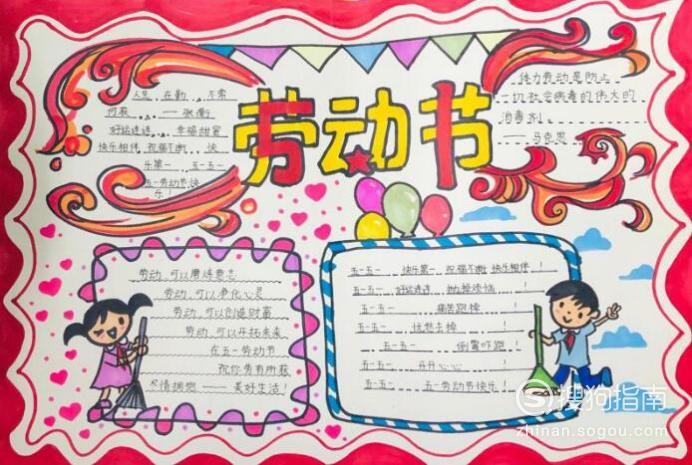 劳动节
人生 在勤 , 不索
何获 。 —— 张衡
好运连连 , 幸福甜蜜
快乐相伴, 祝福不断 , 快
乐第一 , 五一五一
五一劳动节快
乐!
体力劳动是防止
一切社会病毒的伟大的
消毒剂。
—— 马克思
劳动, 可以磨练意志
劳动, 可以净化心灵
劳动, 可以创造财富
劳动, 可以开拓未来
在五一劳动节
祝你劳有所获
尽情拥抱 —— 美好生活!
五一五一 , 快乐第一, 祝福不断, 快乐相伴!
五一五一 , 好运连连 , 抛掉烦恼 !
五一五一 , 痛苦跑掉 !
五一五一 , 忧愁去掉 !
五一五一 , 倒霉吓跑 !
五一五一 , 开开心心 !
五一五一 , 五一劳动节快乐!
S搜狗指南
zhinan.sogou.com